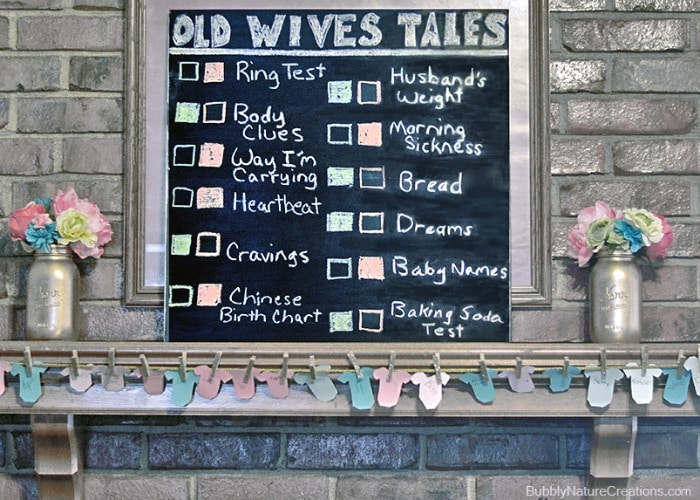 OLD WIVES TALES
Ring Test
Body
Clues
Way I'm
Carrying
Heartbeat
Cravings
Chinese
Birth Chart
Husband's
Weight
Morning
Sickness
Bread
Dreams
Baby Names
Baking Soda
Test
Kerr
Kerr
BubblyNatureCreations.com